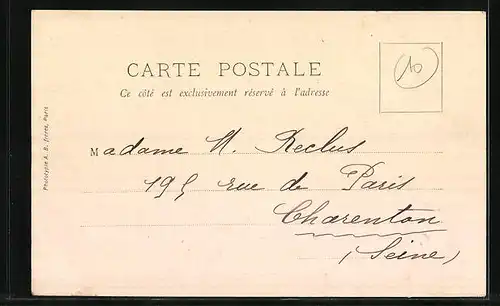 CARTE POSTALE
Ce côté est exclusivement réservé à l'adresse
10
Madame H. Reclus
195 rue de Paris
Charenton
(Seine)
Phototypie A. B. frères, Paris